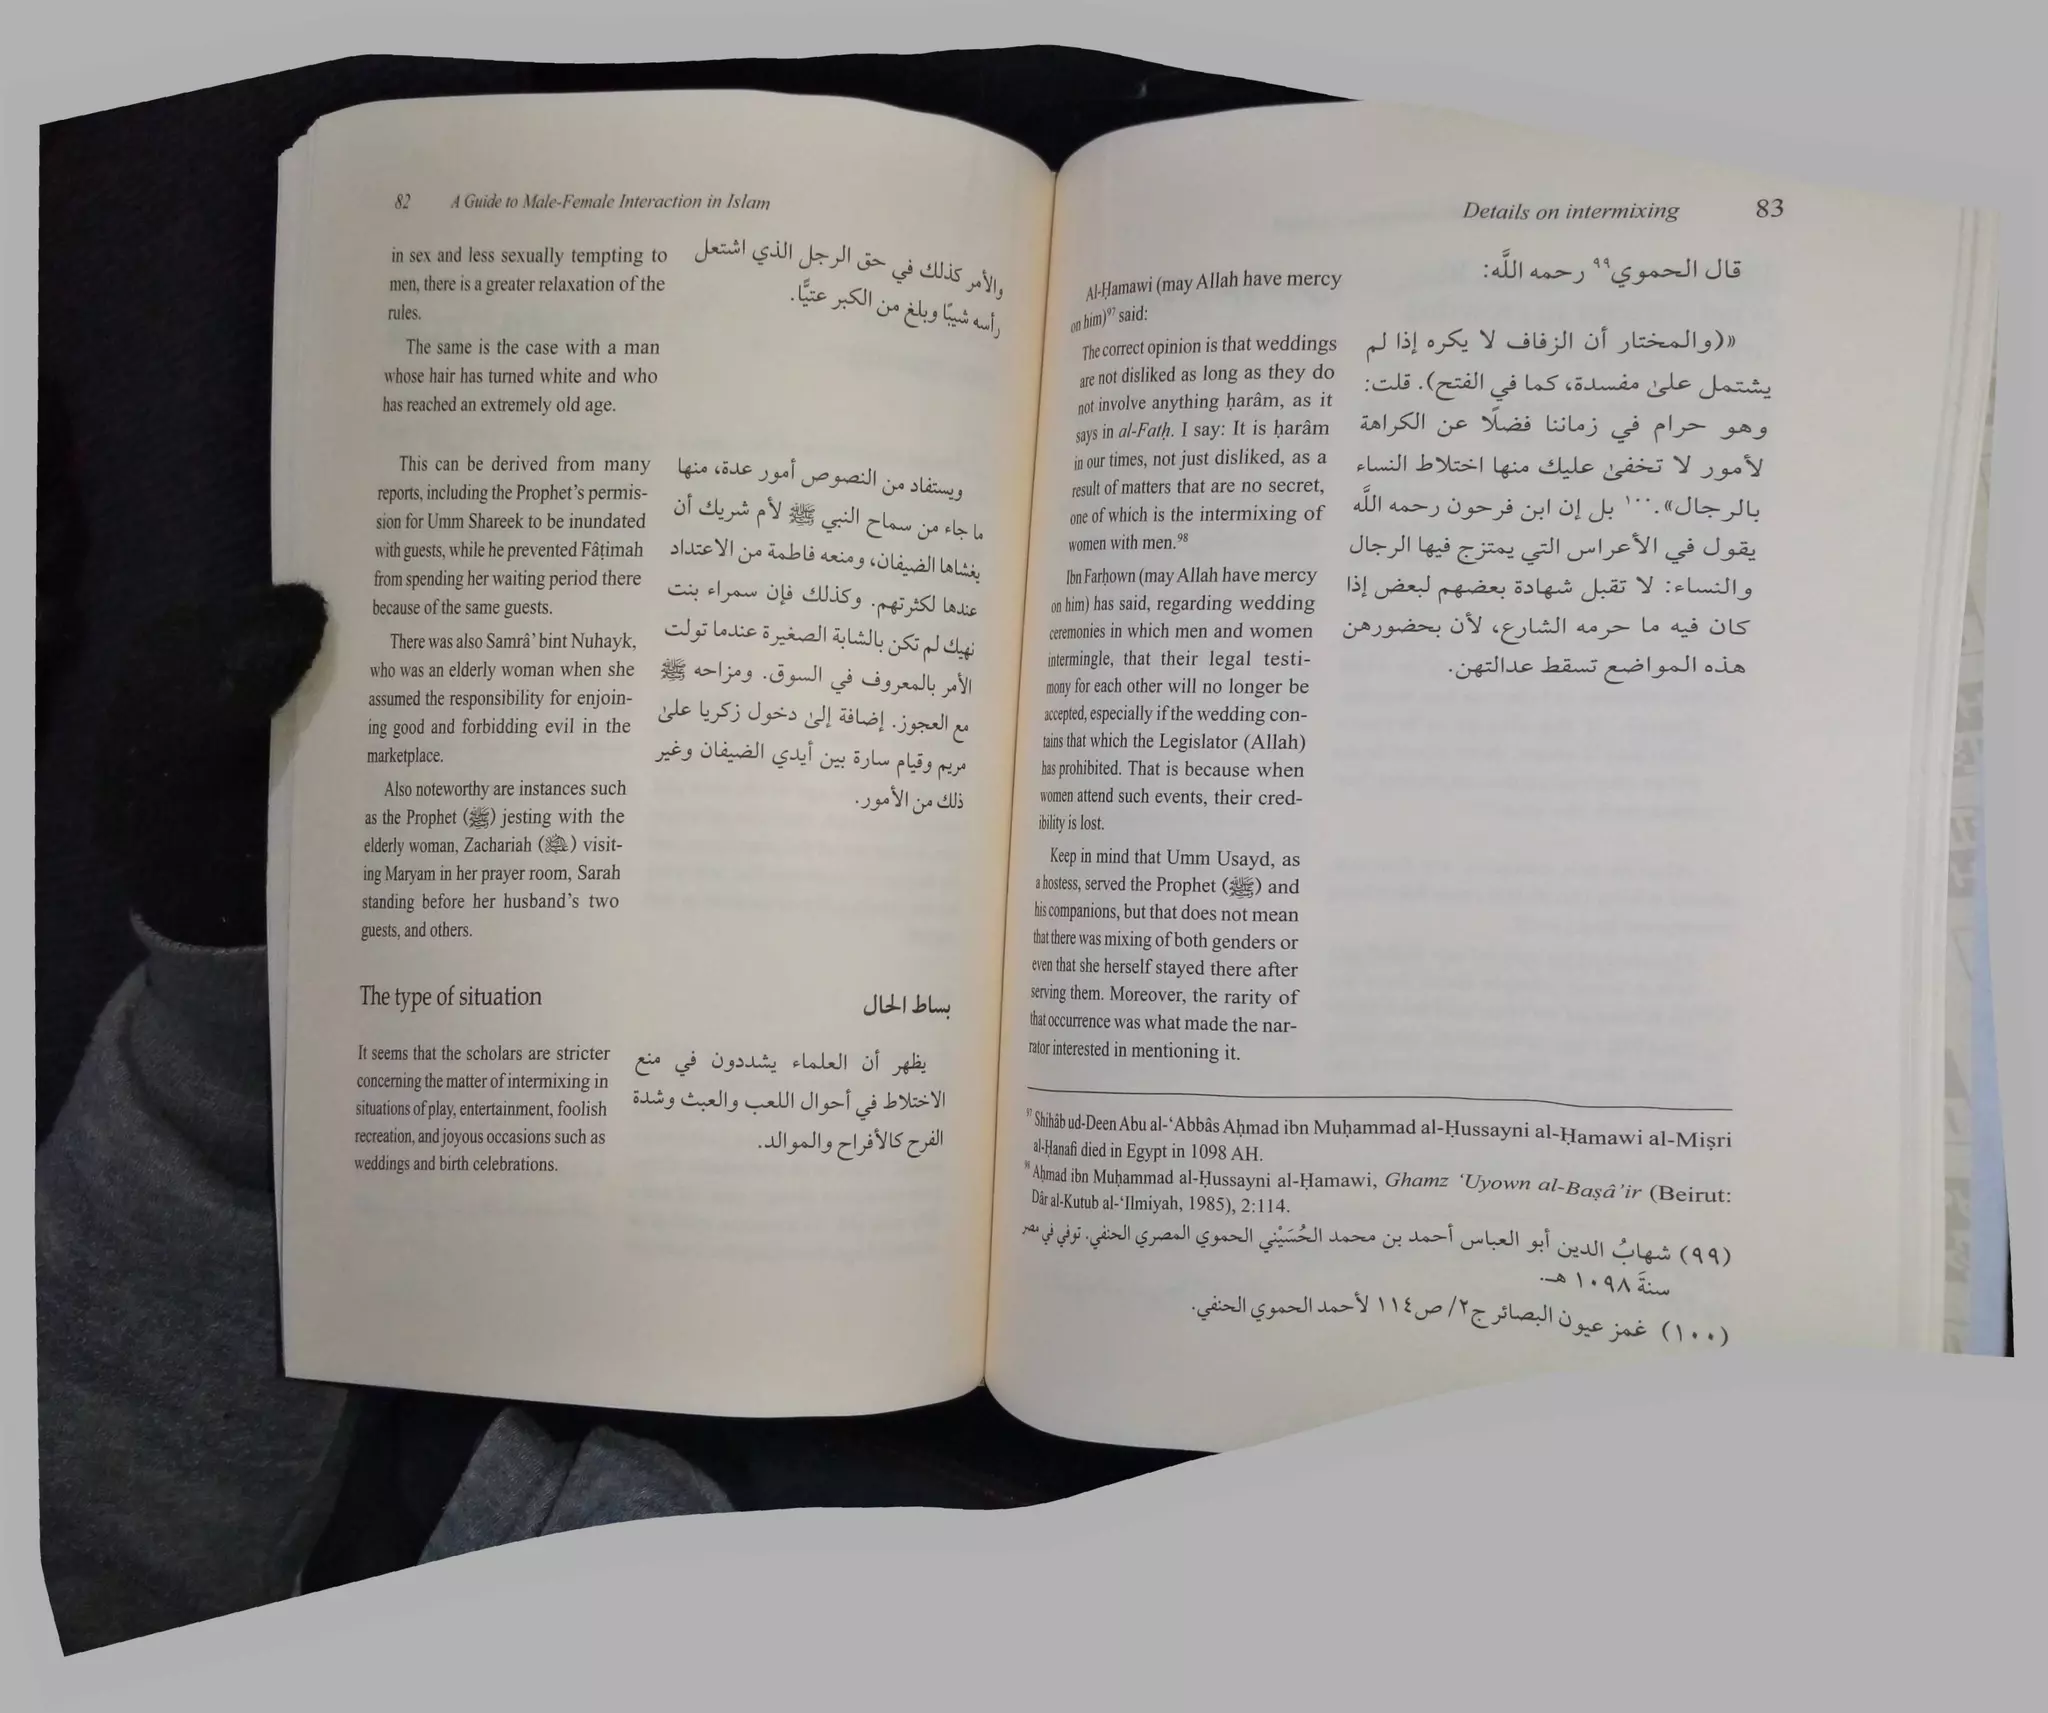 82 A Guide to Male-Female Interaction in Islam
in sex and less sexually tempting to
men, there is a greater relaxation of the
rules.
The same is the case with a man
whose hair has turned white and who
has reached an extremely old age.
This can be derived from many
reports, including the Prophet's permis-
sion for Umm Shareek to be inundated
with guests, while he prevented Fâṭimah
from spending her waiting period there
because of the same guests.
There was also Samrâ' bint Nuhayk,
who was an elderly woman when she
assumed the responsibility for enjoin-
ing good and forbidding evil in the
marketplace.
Also noteworthy are instances such
as the Prophet (ﷺ) jesting with the
elderly woman, Zachariah () visit-
ing Maryam in her prayer room, Sarah
standing before her husband's two
guests, and others.
The type of situation
It seems that the scholars are stricter
concerning the matter of intermixing in
situations of play, entertainment, foolish
recreation, and joyous occasions such as
weddings and birth celebrations.
والأمر كذلك في حق الرجل الذي اشتعل
رأسه شيبًا وبلغ من الكبر عتيًّا.
ويستفاد من النصوص أمور عدة، منها
ما جاء من سماح النبي ﷺ لأم شريك أن
يغشاها الضيفان، ومنعه فاطمة من الاعتداد
عندها لكثرتهم. وكذلك فإن سمراء بنت
نهيك لم تكن بالشابة الصغيرة عندما تولت
الأمر بالمعروف في السوق. ومزاحه ﷺ
مع العجوز. إضافة إلىٰ دخول زكريا علىٰ
مريم وقيام سارة بين أيدي الضيفان وغير
ذلك من الأمور.
بساط الحال
يظهر أن العلماء يشددون في منع
الاختلاط في أحوال اللعب والعبث وشدة
الفرح كالأفراح والموالد.
Details on intermixing 83
Al-Ḥamawi (may Allah have mercy
on him)⁹⁷ said:
The correct opinion is that weddings
are not disliked as long as they do
not involve anything ḥarâm, as it
says in al-Fatḥ. I say: It is ḥarâm
in our times, not just disliked, as a
result of matters that are no secret,
one of which is the intermixing of
women with men.⁹⁸
Ibn Farḥown (may Allah have mercy
on him) has said, regarding wedding
ceremonies in which men and women
intermingle, that their legal testi-
mony for each other will no longer be
accepted, especially if the wedding con-
tains that which the Legislator (Allah)
has prohibited. That is because when
women attend such events, their cred-
ibility is lost.
Keep in mind that Umm Usayd, as
a hostess, served the Prophet (ﷺ) and
his companions, but that does not mean
that there was mixing of both genders or
even that she herself stayed there after
serving them. Moreover, the rarity of
that occurrence was what made the nar-
rator interested in mentioning it.
قال الحموي⁹⁹ رحمه اللَّه:
«(والمختار أن الزفاف لا يكره إذا لم
يشتمل علىٰ مفسدة، كما في الفتح). قلت:
وهو حرام في زماننا فضلًا عن الكراهة
لأمور لا تخفىٰ عليك منها اختلاط النساء
بالرجال».¹⁰⁰ بل إن ابن فرحون رحمه اللَّه
يقول في الأعراس التي يمتزج فيها الرجال
والنساء: لا تقبل شهادة بعضهم لبعض إذا
كان فيه ما حرمه الشارع، لأن بحضورهن
هذه المواضع تسقط عدالتهن.
⁹⁷ Shihâb ud-Deen Abu al-'Abbâs Aḥmad ibn Muḥammad al-Ḥussayni al-Ḥamawi al-Miṣri
al-Ḥanafi died in Egypt in 1098 AH.
⁹⁸ Aḥmad ibn Muḥammad al-Ḥussayni al-Ḥamawi, Ghamz 'Uyown al-Baṣâ'ir (Beirut:
Dâr al-Kutub al-'Ilmiyah, 1985), 2:114.
(٩٩) شهابُ الدين أبو العباس أحمد بن محمد الحُسَيْني الحموي المصري الحنفي. توفي في مصر
سنةَ ١٠٩٨ هـ.
(١٠٠) غمز عيون البصائر ج٢/ ص١١٤ لأحمد الحموي الحنفي.